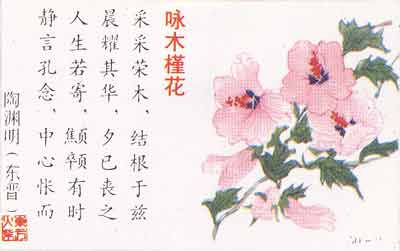 咏木槿花
采采荣木，结根于兹
晨耀其华，夕已丧之
人生若寄，顦顇有时
静言孔念，中心怅而
陶渊明（东晋）